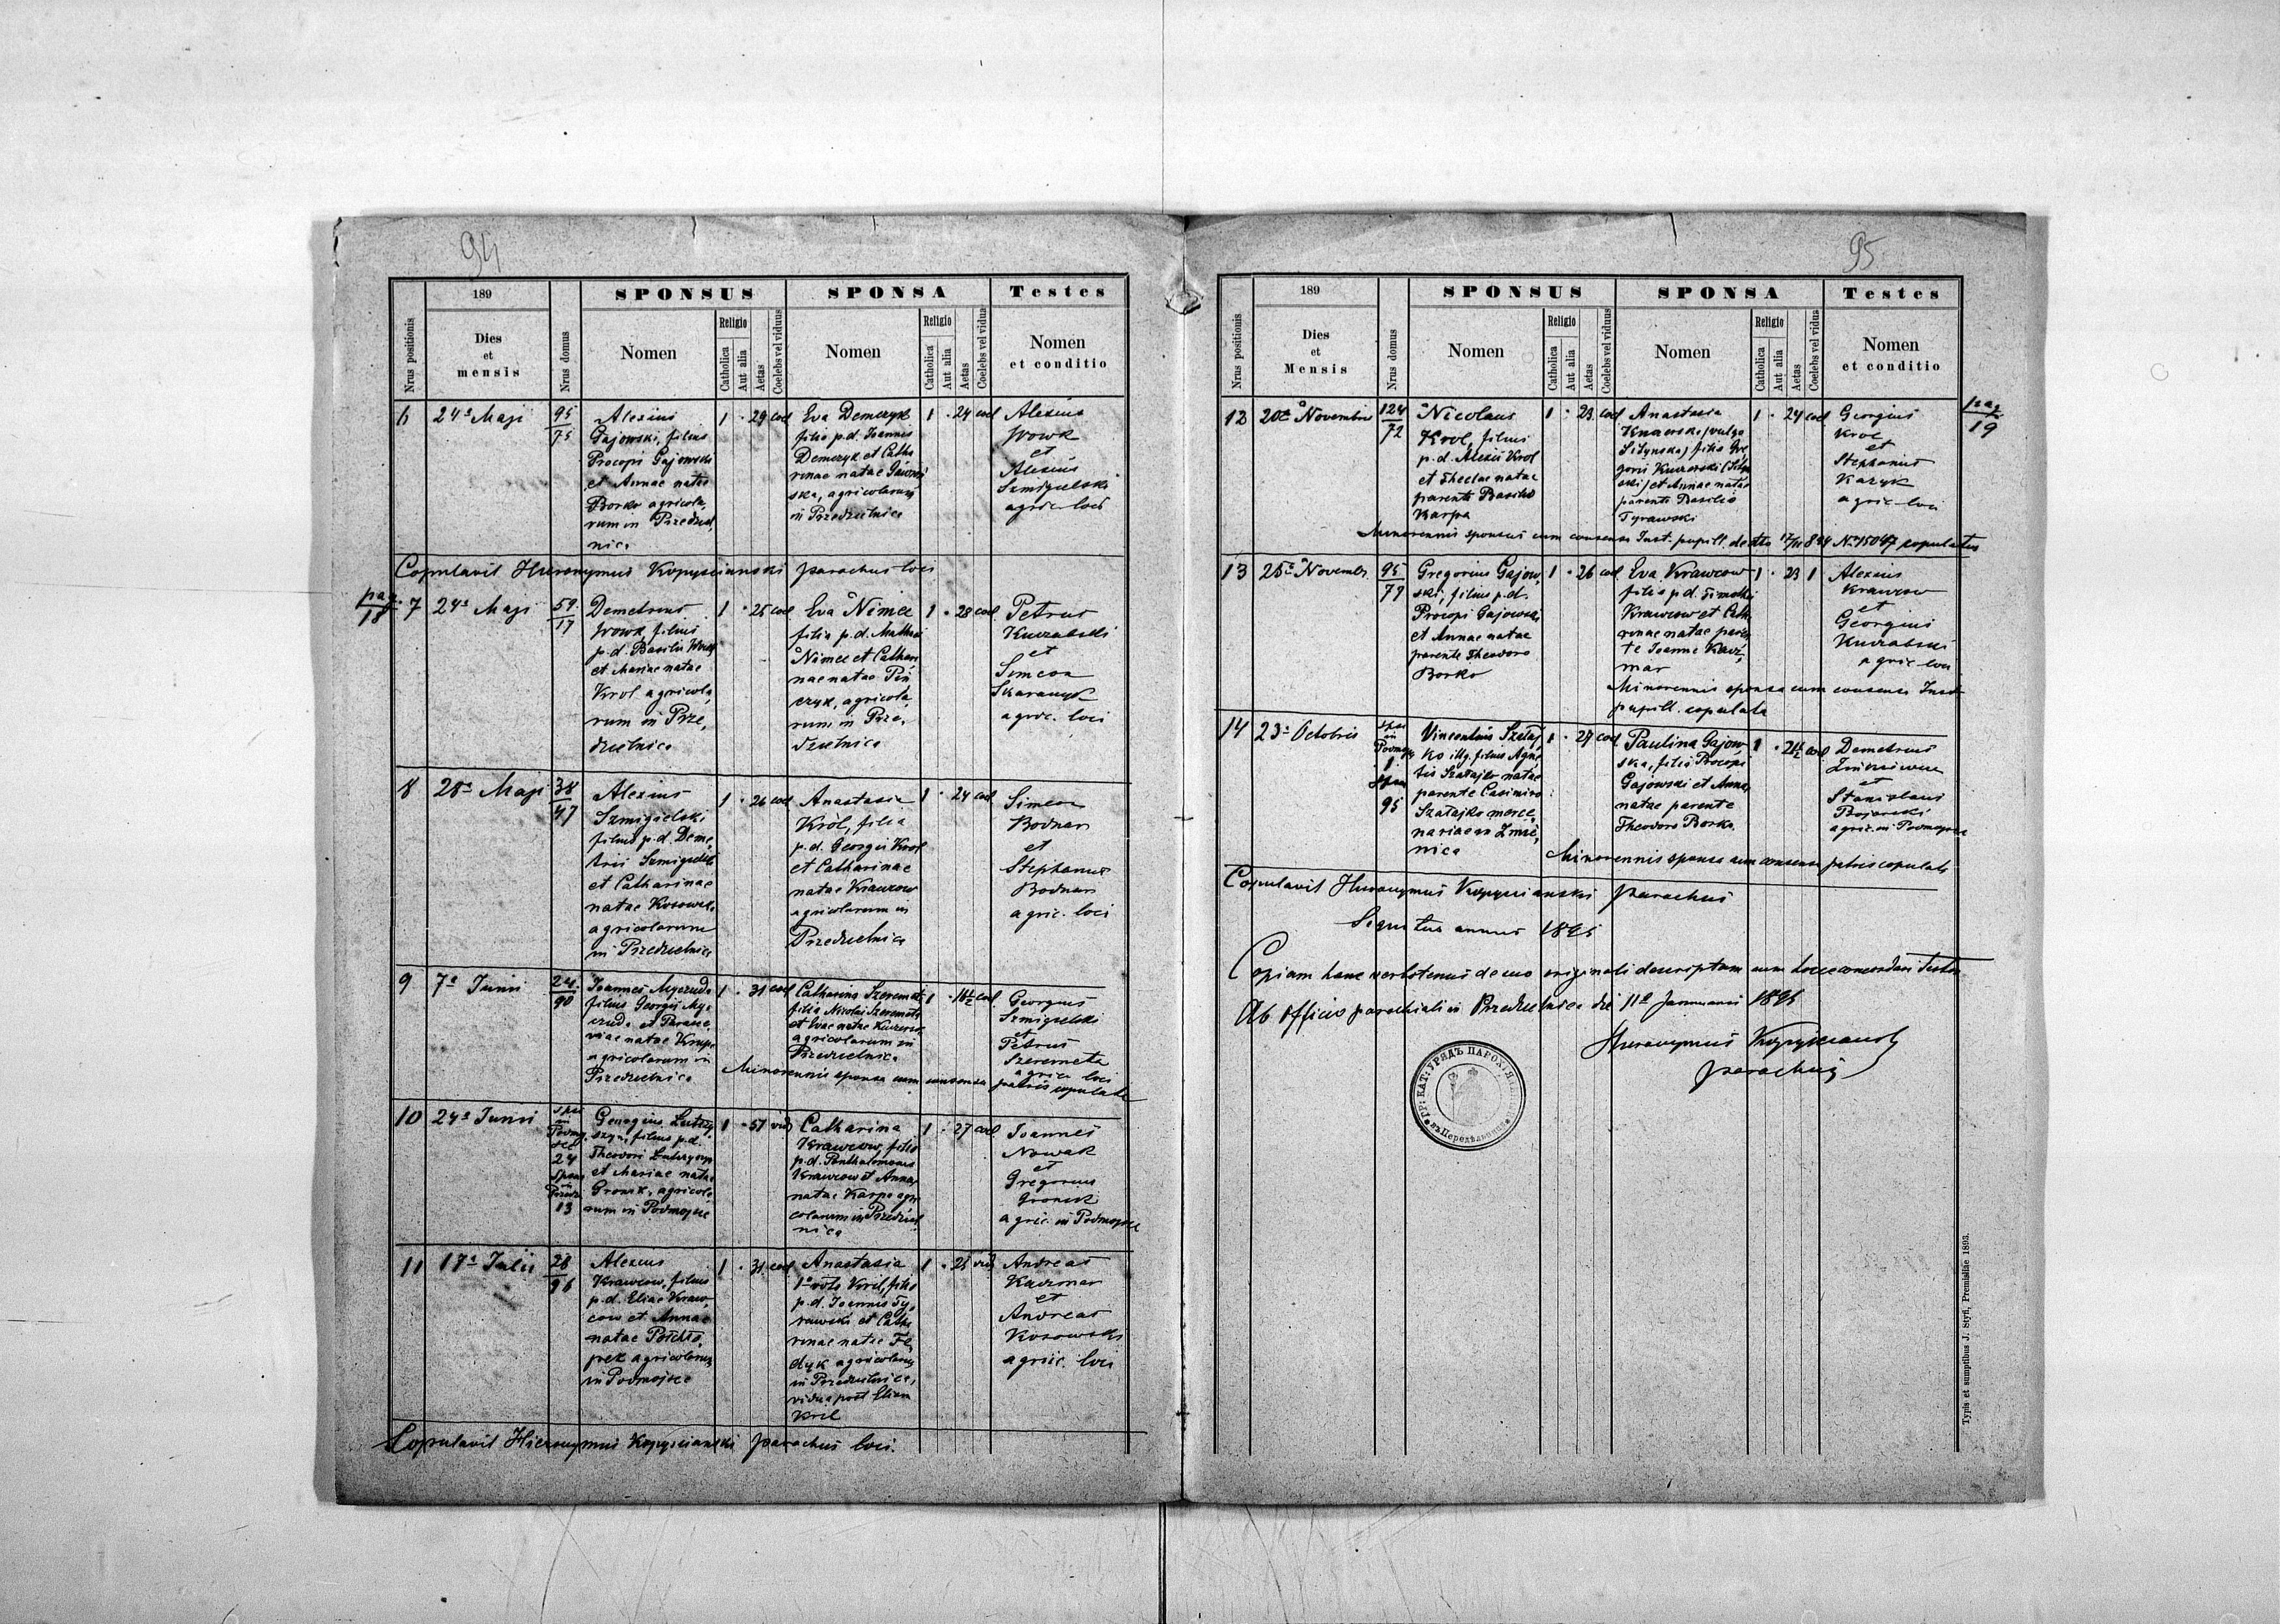 94
189
SPONSUS
SPONSA
Testes
Nrus positionis
Dies
et
mensis
Nrus domus
Nomen
Religio
Catholica
Aut alia
Aetas
Coelebs vel viduus
Nomen
Religio
Catholica
Aut alia
Aetas
Coelebs vel vidua
Nomen
et conditio
6 24a Maji 95/75
Alexius
Gajowski, filius
Procopi Gajowski
et Annae natae
Borko agricola,
rum in Przedziel,
nica
1 · 29 coel
Eva Demczyk
filia p.d. Joannis
Demczyk et Catha
rinae natae Gajow
ska, agricolarum
in Przedzielnica
1 · 24 coel
Alexius
Wowk
et
Alexius
Szmigielski
agric. loci
Copulavit Hieronymus Kopyscianski parochus loci
pag. 18
7 24a Maji 59/17
Demetrius
Wowk, filius
p.d. Basilii Wowk
et Mariae natae
Krol agricola,
rum in Prze,
dzielnica
1 · 25 coel
Eva Nimec
filia p.d. Mathaei
Nimec et Cathari
nae natae Pin
czyk, agricola,
rum in Prze,
dzielnica
1 · 28 coel
Petrus
et
Simeon
agric. loci
8 28a Maji 38/47
Alexius
Szmigielski
filius p.d. Deme,
trii Szmigielski
et Catharinae
natae Kosowska
agricolarum
in Przedzielnica
1 · 26 coel
Anastasia
Król, filia
p.d. Georgii Krol
et Catharinae
natae Krawcow
agricolarum in
Przedzielnica
1 · 24 coel
Simeon
Bodnar
et
Stephanus
Bodnar
agric. loci
9 7a Junii 24/90
Joannes Myczuda
filius Georgii My,
czuda et Parasce,
viae natae Krupa
agricolarum in
Przedzielnica
1 · 31 coel
Catharina Szeremeta
filia Nicolai Szeremeta
et Evae natae
agricolarum in
Przedzielnica
1 · 16 1/2 coel
Georgius
Szmigielski
et
Petrus
Szeremeta
agric. loci
Minorennis sponsa cum consensu patris copulata
10 24a Junii
24
13
Georgius
filius p.d.
Theodori
et Mariae natae
agricola
rum in Podmojsce
1 · 51 vid
Catharina
Krawcow, filia
p.d. Panthaleonis
Krawcow et Annae
natae Karpa agri
colarum in Przedziel
nica
1 · 27 coel
Joannes
Nowak
et
Gregorius
agric. in Podmojsce
11 17a Julii 28/96
Alexius
Krawcow, filius
p.d. Eliae Kraw,
cow et Annae
natae
agricolarum
in Podmojsce
1 · 31 coel
Anastasia
1o voto Kril, filia
p.d. Joannis Ty,
rawski et Catha
rinae natae Fe
dyk agricolarum
in Przedzielnica,
vidua post Eliam
Kril
1 · 25 vid
Andreas
Kaczmar
et
Andreas
Kosowski
agric. loci
Copulavit Hieronymus Kopyscianski parochus loci.
95
189
SPONSUS
SPONSA
Testes
Nrus positionis
Dies
et
Mensis
Nrus domus
Nomen
Religio
Catholica
Aut alia
Aetas
Coelebs vel viduus
Nomen
Religio
Catholica
Aut alia
Aetas
Coelebs vel vidua
Nomen
et conditio
pag. 19
12 20a Novembris 124/72
Nicolaus
Krol, filius
p.d. Alexii Krol
et Theclae natae
parente Basilio
Karpa
1 · 23 coel
Anastasia
filia Gre
gorii
et Annae natae
parente Basilio
Tyrawski
1 · 24 coel
Georgius
Krol
et
Stephanus
Kazyk
agric. loci
Minorennis sponsus cum consensu Inst. pupill. de dto 17/11 894 No 15047 copulatus
13 25a Novembr. 95/79
Gregorius Gajow,
ski, filius p.d.
Procopi Gajowski
et Annae natae
parente Theodoro
Borko
1 · 26 coel
Eva Krawcow
filia p.d. Timothei
Krawcow et Catha
rinae natae paren
te Joanne Kacz,
mar
1 · 23 1
Alexius
Krawcow
et
Georgius
agric. loci
Minorennis sponsa cum consensu Inst
pupill. copulata
14 23a Octobris
1
95
Vincentius Szataj
ko illg. filius Agne
tis Szatajko natae
parente Casimiro
Szatajko merce,
nariae in Zmie,
nica
1 · 27 coel
Paulina Gajow
ska, filia Procopi
Gajowski et Annae
natae parente
Theodoro Borko
1 · 21 1/2 coel
Demetrius
et
Stanislaus
Bojarski
agric. in Podmojsce
Minorennis sponsa cum consensu patris copulata
Copulavit Hieronymus Kopyscianski parochus
Sequitur annus 1895
Copiam hanc verbotenus de suo originali descriptam cum hocce concordari testor
Ab officio parochiali in Przedzielnica die 11a Januarii 1895
Hieronymus Kopyscianski
parochus
ГР: КАТ: УРЯДЪ ПАРОХ:
въ Передѣльници
Typis et sumptibus J. Styfi, Premisliae 1893.